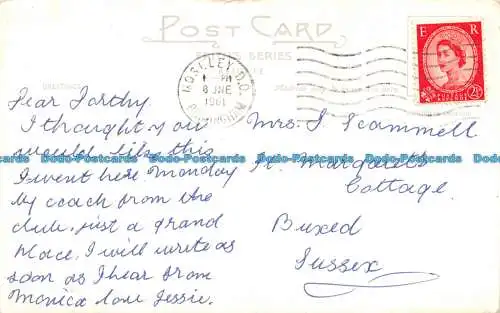 POST CARD
SERIES
MOSELEY. D.O.
1 - PM
8 JNE
1961
BIRMINGHAM
E R
POSTAGE REVENUE
2½D
Dear Forthy.
I thought you
would like this
I went here Monday
by coach from the
club, just a grand
place. I will write as
soon as I hear from
Monica love Jessie.
Mrs. J. Scammell
St. Margarets
Cottage.
Buxed
Sussex
Dodo-Postcards Dodo-Postcards Dodo-Postcards Dodo-Postcards Dodo-Postcards